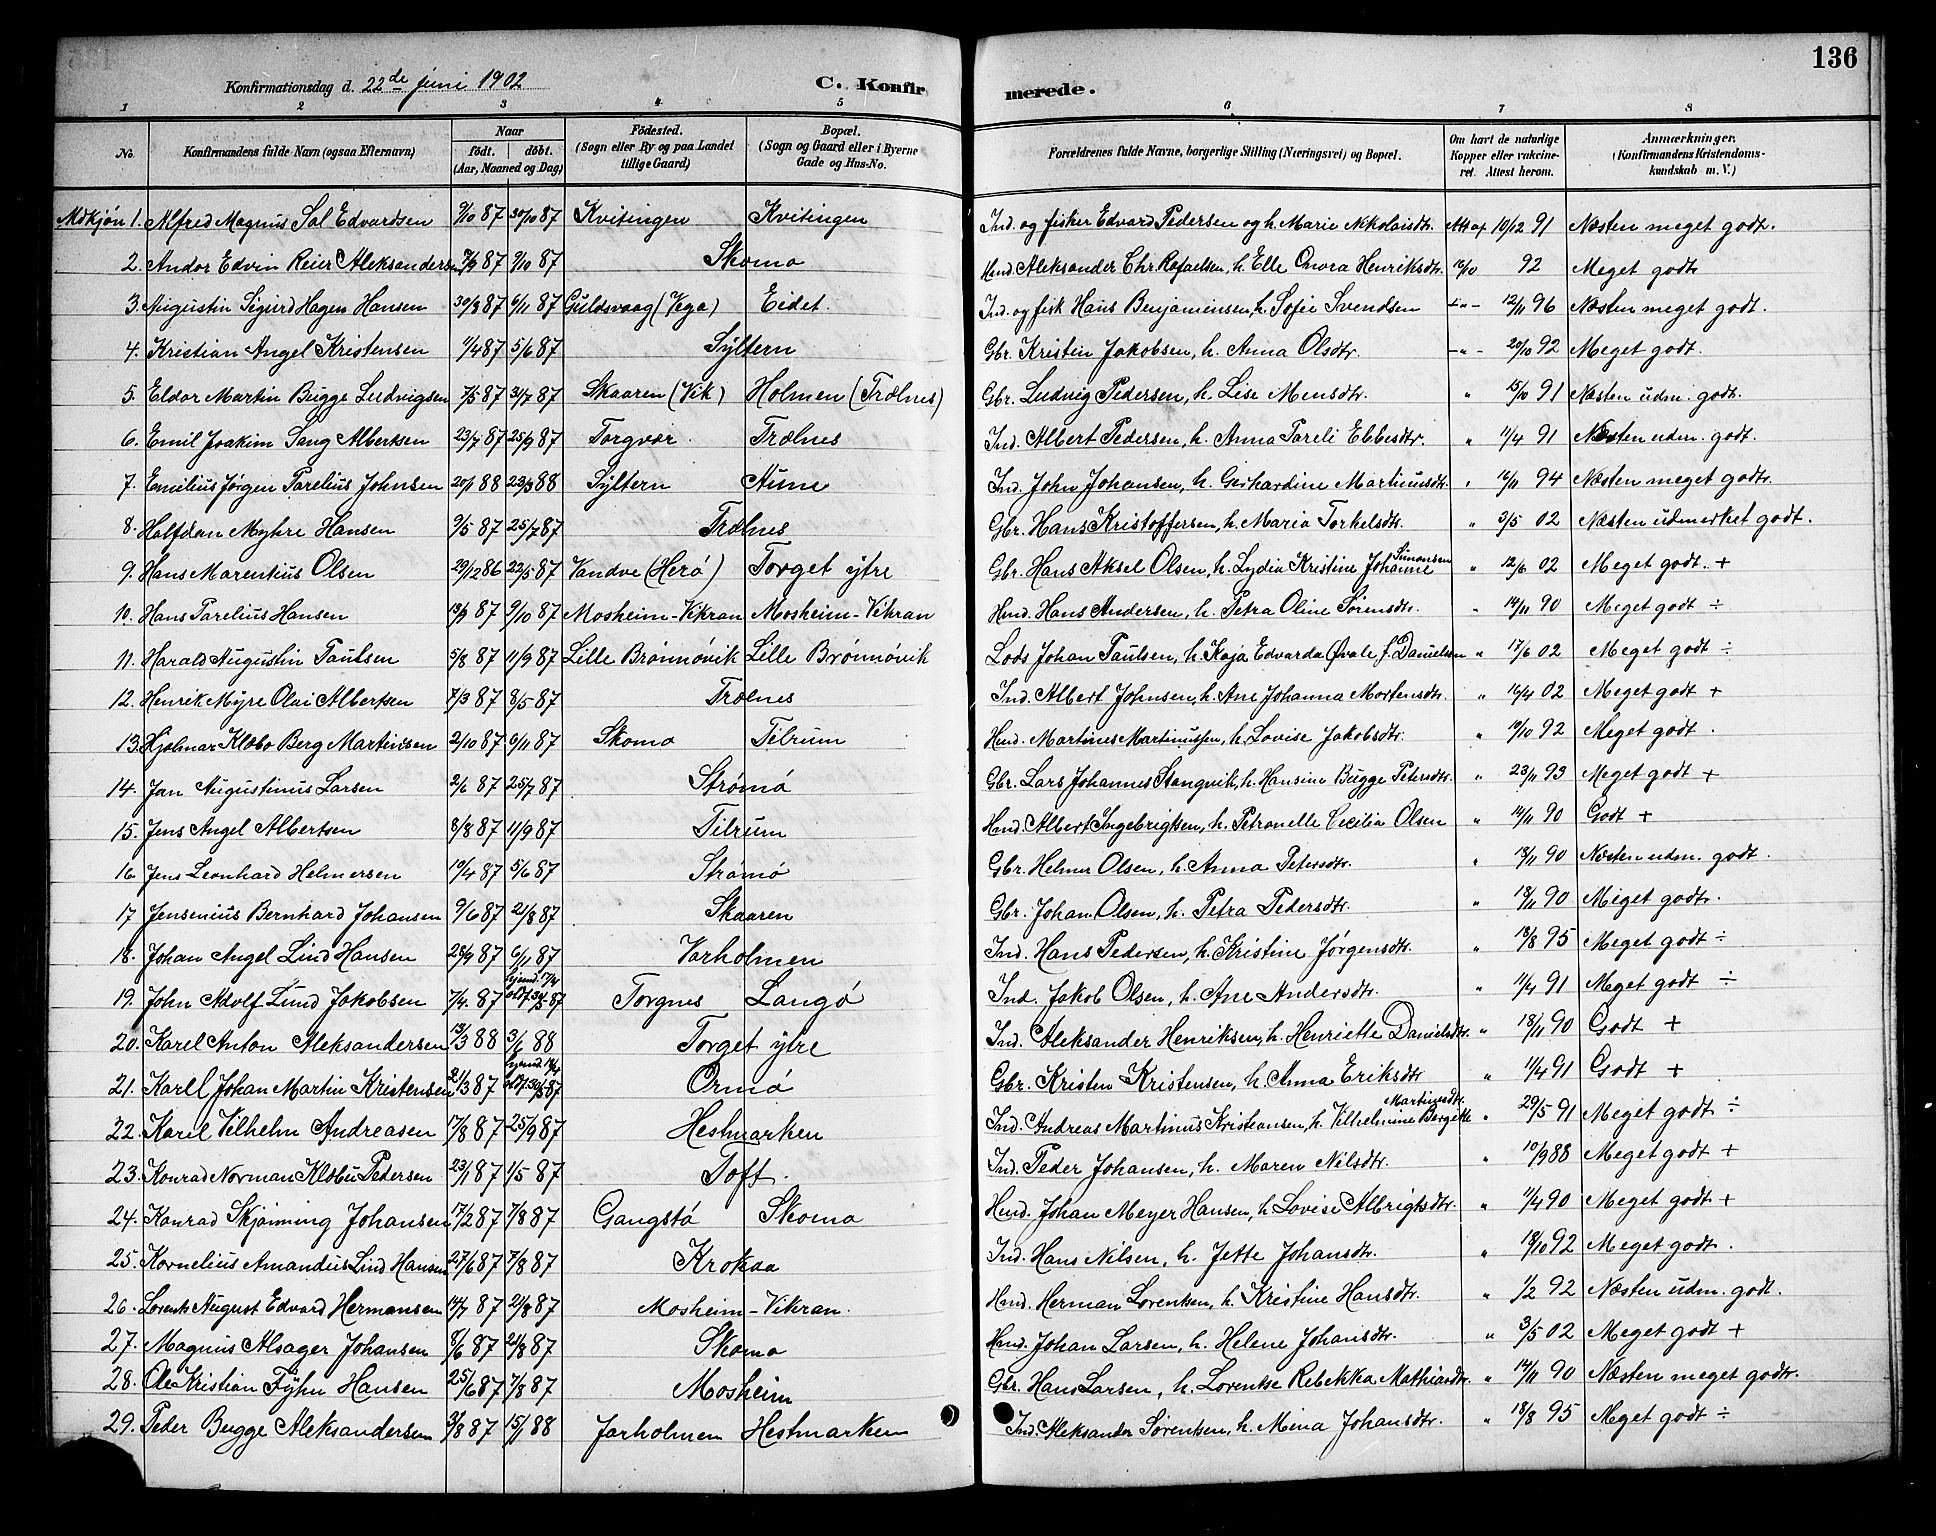 136
Konfirmationsdag d. 22de juni 1902
C. Konfirmerede.
1 2 3 4 5 6 7 8
No. Konfirmandens fulde Navn (ogsaa Efternavn) Naar født. døbt. (Aar, Maaned og Dag) Fødested. (Sogn eller By og paa Landet tillige Gaard) Bopæl. (Sogn og Gaard eller i Byerne Gade og Hus-No. Forældrenes fulde Navne, borgerlige Stilling (Næringsvei) og Bopæl. Om havt de naturlige Kopper eller vaccineret. Attest herom. Anmærkninger. (Konfirmandens Kristendomskundskab m. V.)
Mdkjøn 1. Alfred Magnus Sol Edvardsen 9/10 87 30/10 87 Kvitingen Kvitingen Ind. og fisker Edvard Pedersen og h. Marie Nikolaisdtr. Att af 10/12 91 Næsten meget godt.
2. Andor Edvin Reier Aleksandersen 7/9 87 9/10 87 Skomo Hmd. Aleksander Chr. Rafaelsen, h. Elle Henriksdtr. 92 Meget godt
3. Augustin Sigurd Hagen Hansen 30/8 87 6/11 87 Guldsvaag (Vega) Eidet. Ind. og fisk Hans Benjaminsen, h. Sofie Svendsen -"- 12/11 96 Næsten meget godt.
4. Kristian Angel Kristensen 1/4 87 5/6 87 Sÿltern Gbr. Kristin Jakobsen, h. Anna Olsdtr. -"- 20/10 92 Meget godt.
5. Eldor Martin Bugge Ludvigsen 7/5 87 31/7 87 Skaaren (Vik) Holmen (Trælnes) Gbr. Ludvig Pedersen, h. Lise Mensdtr. " 15/10 91 Næsten udm. godt.
6. Emil Joakim Sang Albertsen 23/7 87 25/9 87 Torgvær. Trælnes Ind. Albert Pedersen, h. Anna Pareli Ebbesdtr. " 11/4 91 Næsten udm. godt.
7. Emilius Jørgen Parelius Johnsen 20/1 88 23/3 88 Sÿltern Aune Ind. John Johansen, h. Gerhardine Martinusdtr. " 16/11 94 Næsten meget godt.
8. Halfdan Myhre Hansen 9/5 87 25/7 87 Trælnes Gbr. Hans Kristoffersen, h. Maria Torkelsdtr. " 3/5 02 Næsten udmerket godt.
9. Hans Marentius Olsen 29/12 86 22/5 87 Vandve (Herø) Torget ÿtre Gbr. Hans Aksel Olsen, h. Lydia Kristine Johanne Simonsen " 12/6 02 Meget godt. +
10. Hans Parelius Hansen 13/9 87 9/10 87 Mosheim-Vikran Mosheim-Vikran Hmd. Hans Andersen, h. Petra Oline Sørensdtr. " 14/11 90 Meget godt ÷
11. Harald Augustin Paulsen 5/8 87 11/9 87 Lille Brønnøvik Lille Brønnøvik Lods Johan Paulsen, h. Kaja Edvarda Øvale f. Danielsen " 17/6 02 Meget godt ÷
12. Henrik Mÿre Olai Albertsen 7/3 87 8/5 87 Trælnes Ind. Albert Johnsen, h. Ane Johanna Mortensdtr. " 16/4 02 Meget godt +
13. Hjalmar Klæbo Berg Martinsen 2/10 87 6/11 87 Skomo Tilrum Hmd. Martines Martinussen, h. Lovise Jakobsdtr. " 19/10 92 Meget godt.
14. Jan Augustinus Larsen 2/6 87 25/7 87 Strømø Gbr. Lars Johannes Stangvik, h. Hansine Bugge Petersdtr. " 23/11 93 Meget godt +
15. Jens Angel Albertsen 8/8 87 11/9 87 Tilrum Hmd. Albert Ingebrigtsen, h. Petronelle Cecilia Olsen " 14/11 90 Godt +
16. Jens Leonhard Helmersen 19/4 87 5/6 87 Strømø Gbr. Helmer Olsen, h. Anna Petersdtr. " 13/11 90 Næsten udm. godt.
17 Jensenius Bernhard Johansen 9/6 87 21/8 87 Skaaren Gbr. Johan Olsen, h. Petra Pedersdtr. " 18/11 90 Meget godt.
18. Johan Angel Lind Hansen 26/9 87 6/11 87 Varholmen Ind. Hans Pedersen, h. Kristine Jørgensdtr. " 18/8 95 Meget godt ÷
19. John Adolf Lund Jakobsen 7/4 87 hjemd. 17/4 Torgnes Langø Ind. Jakob Olsen, h. Ane Andersdtr. " 11/4 91 Meget godt ÷
20. Karel Anton Aleksandersen 13/3 88 3/6 88 Torget ÿtre Ind. Aleksander Henriksen, h. Henriette Danielsdtr. " 18/11 90 Godt +
21. Karell Johan Martin Kristensen 21/3 87 hjemd. Ormø Gbr. Kristen Kristensen, h. Anna Eriksdtr " 11/4 91 Godt +
22. Karel Vilhelm Andreasen 17/8 87 25/9 87 Hestmarken Ind. Andreas Martinus Kristiansen, h. Vilhelmine Bergitte Martinsdtr. " 29/5 91 Meget godt ÷
23. Konrad Norman Klæbu Pedersen 23/1 87 1/5 87 Toft. Ind. Peder Johansen, h. Maren Nilsdtr. " 10/9 88 Meget godt +
24. Konrad Skjønning Johansen 17/2 87 7/8 87 Gangstø Skomo Hmd. Johan Meyer Hansen, h. Lovise Albrigtsdtr. " 11/4 90 Meget godt +
25. Kornelius Amandus Lind Hansen 27/6 87 7/8 87 Krokaa Ind. Hans Nilsen, h. Jette Johansdtr. " 18/10 92 Meget godt.
26. Lorents August Edvard Hermansen 14/7 87 21/8 87 Mosheim-Vikran. Hmd. Herman Lorentsen, h. Kristine Hansdtr. " 1/2 92 Næsten udm. godt.
27. Magnus Alsager Johansen 8/6 87 21/8 87 Skomo Hmd. Johan Larsen, h. Helene Johansdtr. " 3/5 02 Meget godt +
28. Ole Kristian Fÿhn Hansen 25/6 87 7/8 87 Mosheim Gbr. Hans Larsen, h. Lorentse Rebekka Mathiasdtr. " 14/11 90 Næsten meget godt.
29. Peder Bugge Aleksandersen 3/8 87 15/1 88 Jarholmen Hestmarken Ind. Aleksander Sørentsen, h. Mina Johansdtr. " 18/8 95 Meget godt ÷